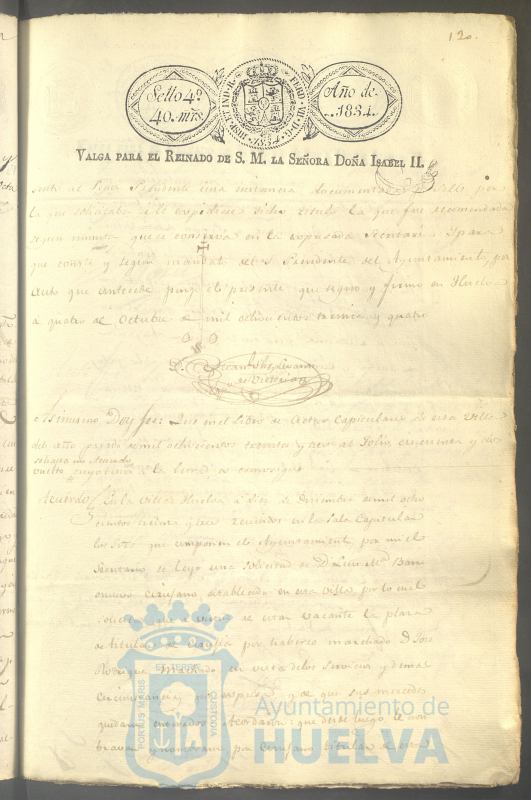 120.
Sello 4º
40. mrs.
HISP. ET IND. R.
FERD. VII. D. G.
1834
Año de
1834.
VALGA PARA EL REINADO DE S. M. LA SEÑORA DOÑA ISABEL II.
Señor Presidente una instancia documentada
la que solicitaba se le expidiese dicho titulo la que fue recomendada
segun minuta que se conserva en la expresada Secretaria. Y para
que conste y segun mandato del S. Presidente del Ayuntamiento, por
Auto que antecede pongo el presente que signo y firmo en Huelva
a quatro de Octubre de mil ochocientos treinta y quatro
Asimismo Doy fee: Que en el Libro de Actas Capitulares de esta Villa
del año pasado de mil ochocientos treinta y tres al folio cinquenta y dos
vuelto
Acuerdo En la villa de Huelva a diez de Diciembre de mil ocho
cientos treinta y tres reunidos en la Sala Capitular
los Sres. que componen el Ayuntamiento, por mi el
Secretario se leyó una solicitud de D.
Cirujano establecido en esta villa por la cual
solicita que a virtud de estar vacante la plaza
de titular de Cirujia por haberse marchado D. Jose
Rodriguez Machado en vista de los servicios y demas
circunstancias que expresa y de que sus mercedes
quedaron enterados Acordaron: que desde luego le nom
braban y nombraron por cirujano titular de esta
PORTUS MARIS ET TERRAE CUSTODIA
Ayuntamiento de
HUELVA